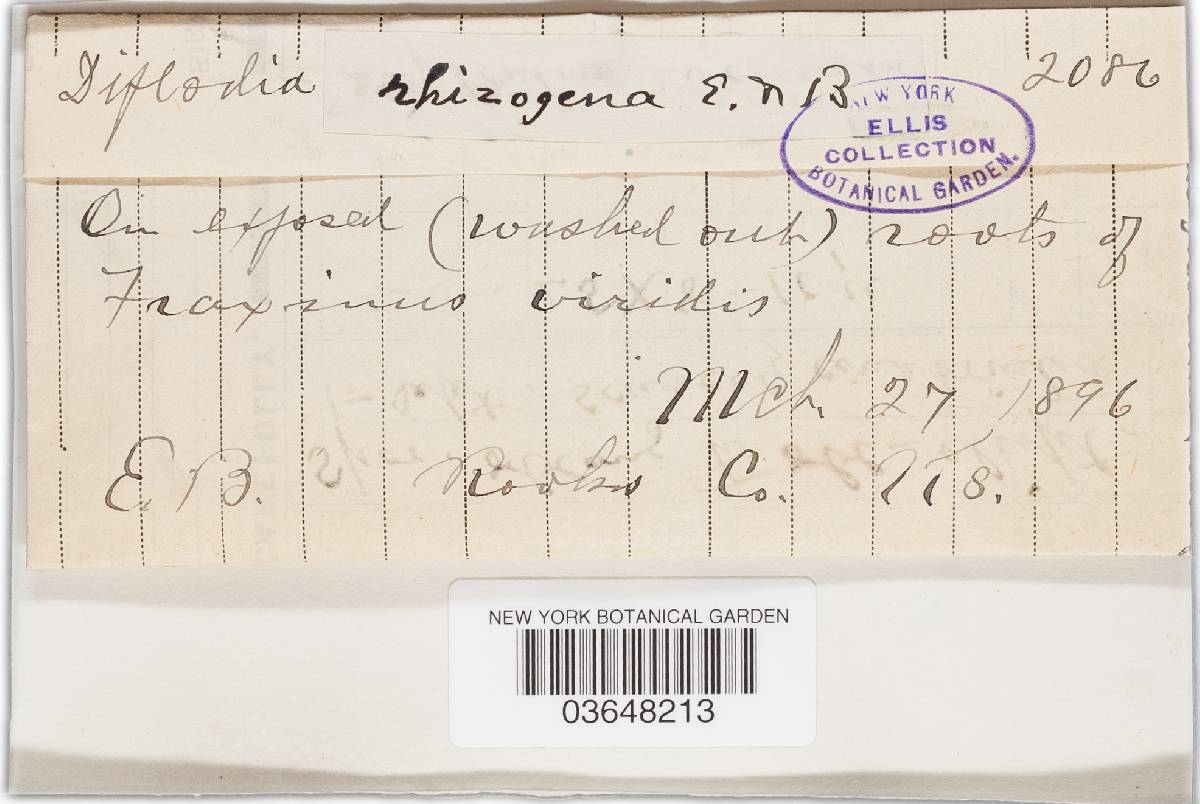 Diplodia rhizogena E. & B. 2086
NEW YORK
ELLIS
COLLECTION
BOTANICAL GARDEN.
On exposed (washed out) roots of
Fraxinus viridis
Mch. 27, 1896
E. B. Rooks Co. Ks.
NEW YORK BOTANICAL GARDEN
03648213